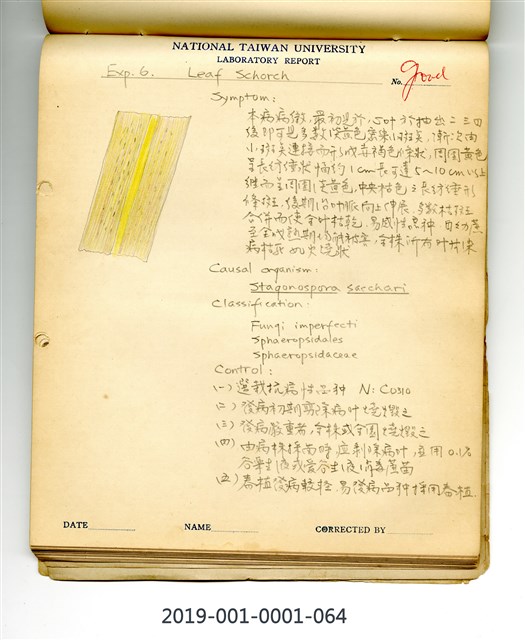 NATIONAL TAIWAN UNIVERSITY
LABORATORY REPORT
Exp. 6. Leaf Schorch
No. Good
Symptom:
本病病徵,最初見於心叶抽出二三四
後即可見多數淡黃色 斑吳,漸次由
小斑吳連接而形成赤褐色條狀,周圍黃色
呈長紡錘狀幅約1cm長可達5~10cm以上
繼而至周圍淡黃色,中央枯色之長紡錘形
條斑,後期沿叶脈向上伸展,多數枯斑
合併而使全叶枯乾,易感性品种 自幼蔗
至全成熟期 被害,全株所有叶片
病枯死如火燒狀
Causal organism:
Stagonospora sacchari
Classification:
Fungi imperfecti
Sphaeropsidales
Sphaeropsidaceae
Control:
(一) 選栽抗病性品种 N: Co310
(二) 發病初期剪除病叶燒燬之
(三) 發病嚴重者,全株或全園燒燬之
(四) 由病株採苗時,应剝除病叶,並用0.1%
谷樂生液或愛谷生液消毒蔗苗
(五) 春植發病較輕,易發病品种採用春植
DATE
NAME
CORRECTED BY
2019-001-0001-064